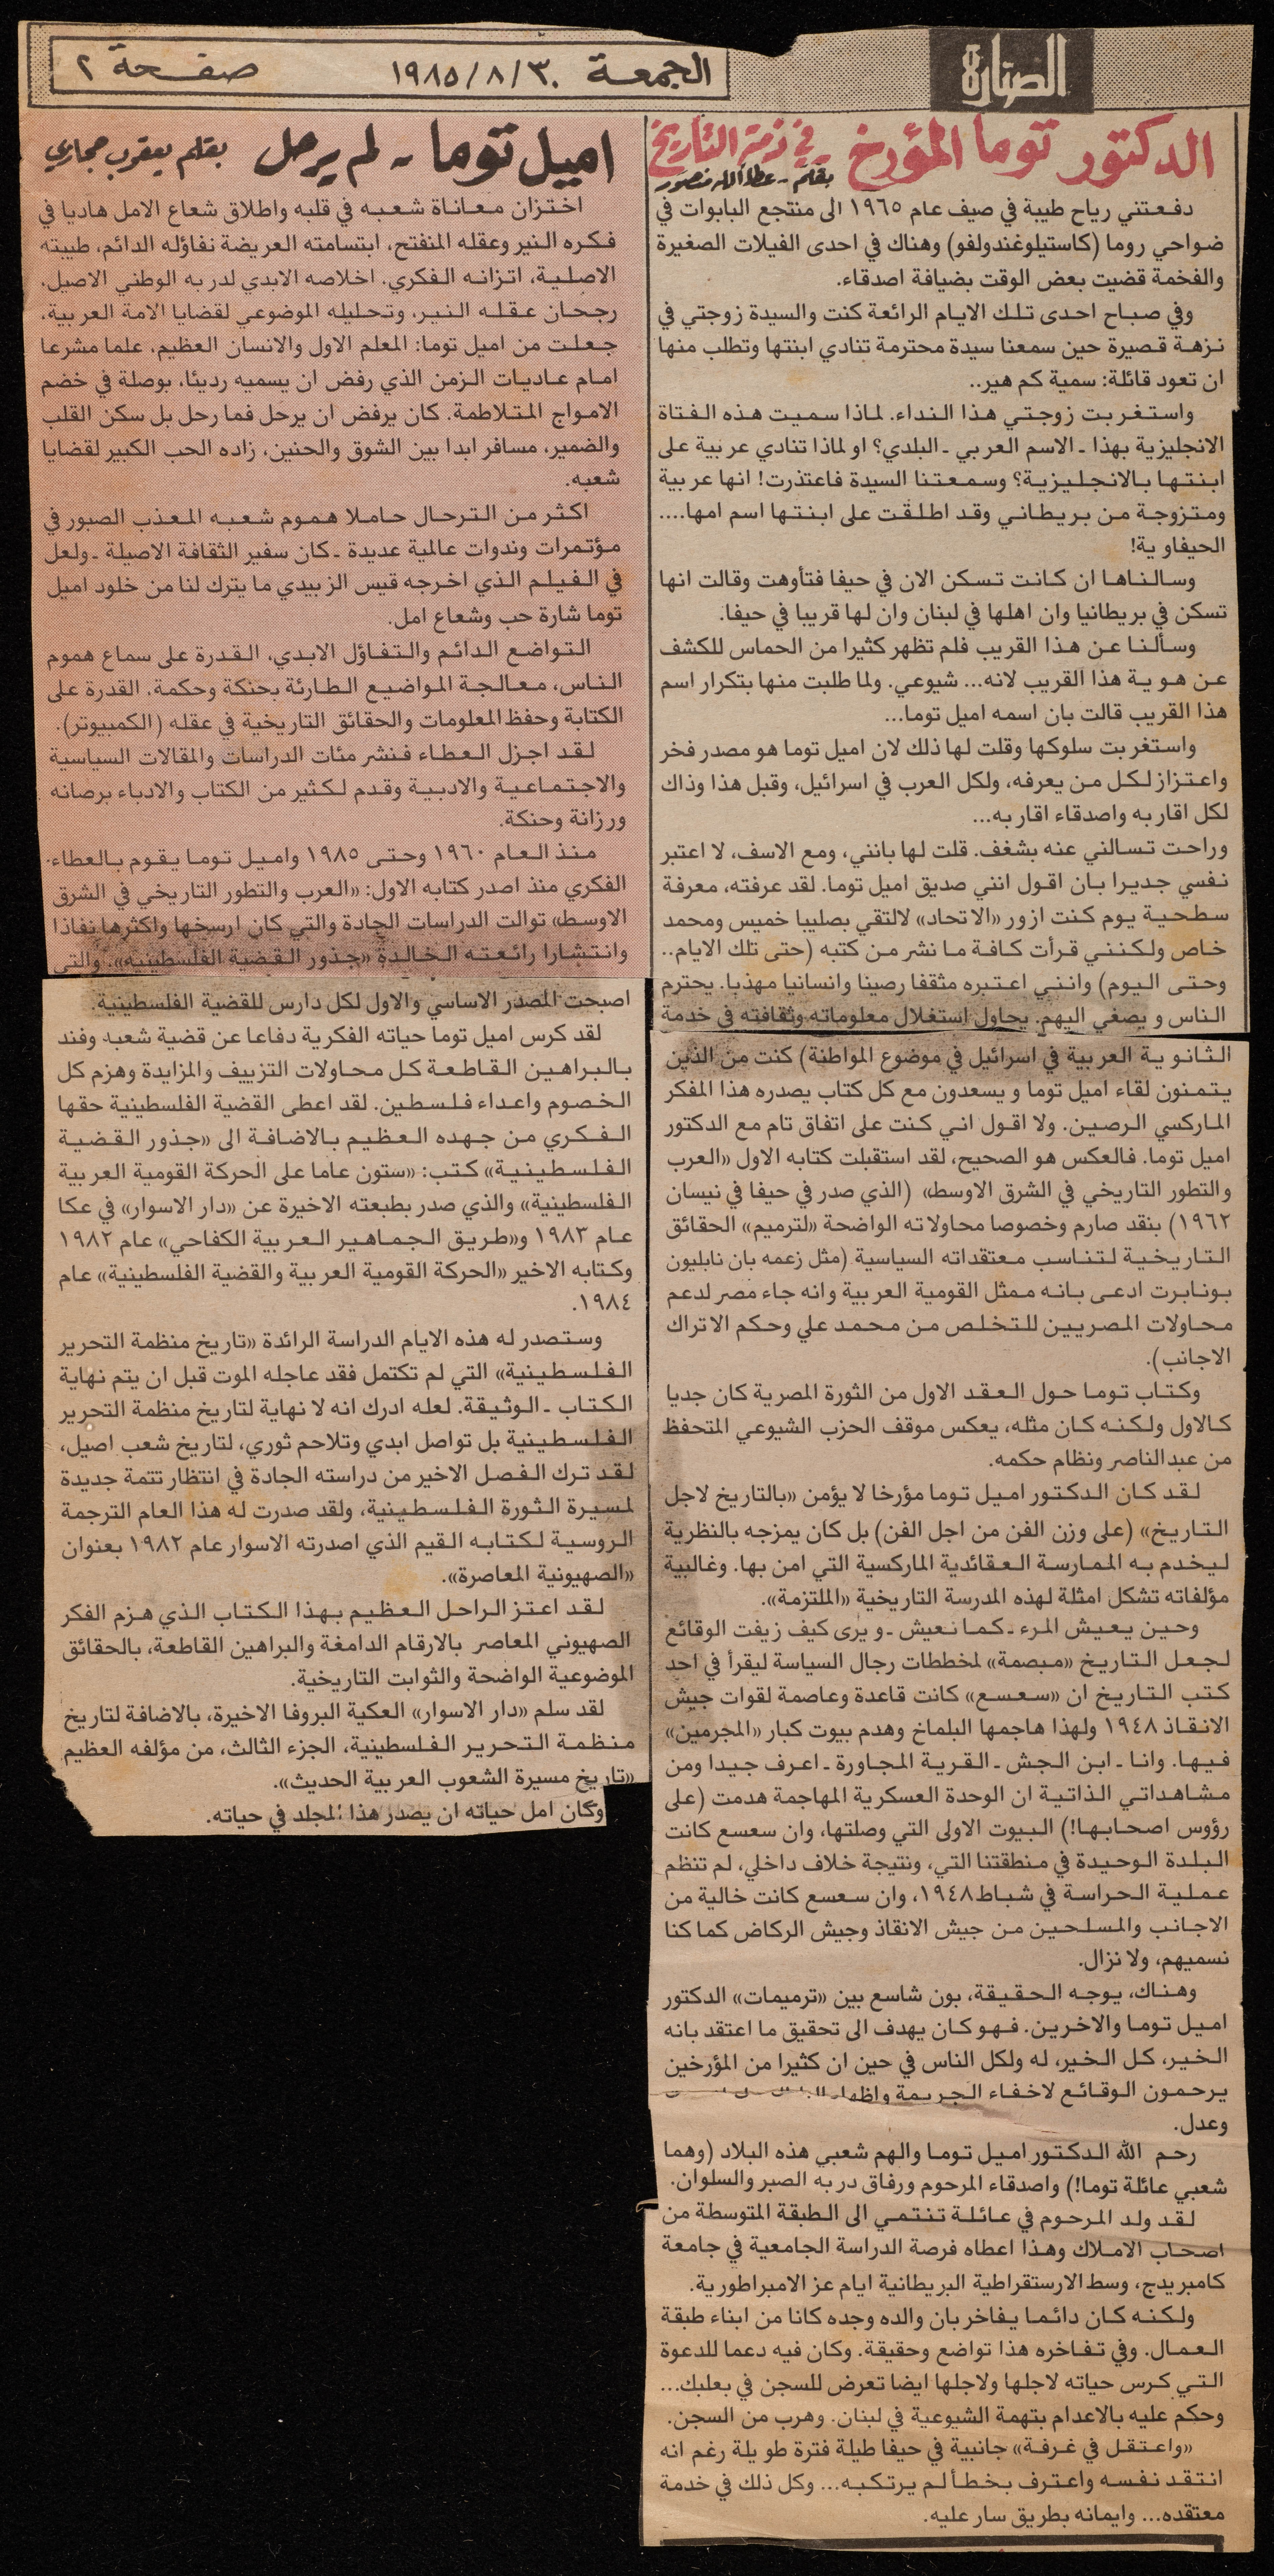 الصنارة
الجمعة ٣٠/٨/١٩٨٥
صفحة ٢
الدكتور توما المؤرخ في ذمة التأريخ
بقلم - عطاالله منصور
دفعتني رياح طيبة في صيف عام ١٩٦٥ الى منتجع البابوات في
ضواحي روما (كاستيلوغندولفو) وهناك في احدى الفيلات الصغيرة
والفخمة قضيت بعض الوقت بضيافة اصدقاء.
وفي صباح احدى تلك الايام الرائعة كنت والسيدة زوجتي في
نزهة قصيرة حين سمعنا سيدة محترمة تنادي ابنتها وتطلب منها
ان تعود قائلة: سمية كم هير..
واستغربت زوجتي هذا النداء. لماذا سميت هذه الفتاة
الانجليزية بهذا ـ الاسم العربي ـ البلدي؟ او لماذا تنادي عربية على
ابنتها بالانجليزية؟ وسمعتنا السيدة فاعتذرت! انها عربية
ومتزوجة من بريطاني وقد اطلقت على ابنتها اسم امها....
الحيفاوية!
وسالناها ان كانت تسكن الان في حيفا فتأوهت وقالت انها
تسكن في بريطانيا وان اهلها في لبنان وان لها قريبا في حيفا.
وسألنا عن هذا القريب فلم تظهر كثيرا من الحماس للكشف
عن هوية هذا القريب لانه... شيوعي. ولما طلبت منها بتكرار اسم
هذا القريب قالت بان اسمه اميل توما...
واستغربت سلوكها وقلت لها ذلك لان اميل توما هو مصدر فخر
واعتزاز لكل من يعرفه، ولكل العرب في اسرائيل، وقبل هذا وذاك
لكل اقاربه واصدقاء اقاربه...
وراحت تسالني عنه بشغف. قلت لها بانني، ومع الاسف، لا اعتبر
نفسي جديرا بان اقول انني صديق اميل توما. لقد عرفته، معرفة
سطحية يوم كنت ازور «الاتحاد» لالتقي بصليبا خميس ومحمد
خاص ولكنني قرأت كافة ما نشر من كتبه (حتى تلك الايام..
وحتى اليوم) وانني اعتبره مثقفا رصينا وانسانيا مهذبا. يحترم
الناس ويصغي اليهم. يحاول استغلال معلوماته وثقافته في خدمة
الثانوية العربية في اسرائيل في موضوع المواطنة) كنت من الذين
يتمنون لقاء اميل توما ويسعدون مع كل كتاب يصدره هذا المفكر
الماركسي الرصين. ولا اقول اني كنت على اتفاق تام مع الدكتور
اميل توما. فالعكس هو الصحيح، لقد استقبلت كتابه الاول «العرب
والتطور التاريخي في الشرق الاوسط» (الذي صدر في حيفا في نيسان
١٩٦٢) بنقد صارم وخصوصا محاولاته الواضحة «لترميم» الحقائق
التاريخية لتناسب معتقداته السياسية (مثل زعمه بان نابليون
بونابرت ادعى بانه ممثل القومية العربية وانه جاء مصر لدعم
محاولات المصريين للتخلص من محمد علي وحكم الاتراك
الاجانب).
وكتاب توما حول العقد الاول من الثورة المصرية كان جديا
كالاول ولكنه كان مثله، يعكس موقف الحزب الشيوعي المتحفظ
من عبد الناصر ونظام حكمه.
لقد كان الدكتور اميل توما مؤرخا لا يؤمن «بالتاريخ لاجل
التاريخ» (على وزن الفن من اجل الفن) بل كان يمزجه بالنظرية
ليخدم به الممارسة العقائدية الماركسية التي امن بها. وغالبية
مؤلفاته تشكل امثلة لهذه المدرسة التاريخية «الملتزمة».
وحين يعيش المرء ـ كما نعيش ـ ويرى كيف زيفت الوقائع
لجعل التاريخ «مبصمة» لمخططات رجال السياسة ليقرأ في احد
كتب التاريخ ان «سعسع» كانت قاعدة وعاصمة لقوات جيش
الانقاذ ١٩٤٨ ولهذا هاجمها البلماخ وهدم بيوت كبار «المجرمين»
فيها. وانا ـ ابن الجش ـ القرية المجاورة ـ اعرف جيدا ومن
مشاهداتي الذاتية ان الوحدة العسكرية المهاجمة هدمت (على
رؤوس اصحابها!) البيوت الاولى التي وصلتها، وان سعسع كانت
البلدة الوحيدة في منطقتنا التي، ونتيجة خلاف داخلي، لم تنظم
عملية الحراسة في شباط ١٩٤٨، وان سعسع كانت خالية من
الاجانب والمسلحين من جيش الانقاذ وجيش الركاض كما كنا
نسميهم، ولا نزال.
وهناك، يوجه الحقيقة، بون شاسع بين «ترميمات» الدكتور
اميل توما والاخرين. فهو كان يهدف الى تحقيق ما اعتقد بانه
الخير، كل الخير، له ولكل الناس في حين ان كثيرا من المؤرخين
يرحمون الوقائع لاخفاء الجريمة واظهار
وعدل.
رحم الله الدكتور اميل توما والهم شعبي هذه البلاد (وهما
شعبي عائلة توما!) واصدقاء المرحوم ورفاق دربه الصبر والسلوان.
لقد ولد المرحوم في عائلة تنتمي الى الطبقة المتوسطة من
اصحاب الاملاك وهذا اعطاه فرصة الدراسة الجامعية في جامعة
كامبريدج، وسط الارستقراطية البريطانية ايام عز الامبراطورية.
ولكنه كان دائما يفاخر بان والده وجده كانا من ابناء طبقة
العمال. وفي تفاخره هذا تواضع وحقيقة. وكان فيه دعما للدعوة
التي كرس حياته لاجلها ولاجلها ايضا تعرض للسجن في بعلبك...
وحكم عليه بالاعدام بتهمة الشيوعية في لبنان. وهرب من السجن.
«واعتقل في غرفة» جانبية في حيفا طيلة فترة طويلة رغم انه
انتقد نفسه واعترف بخطأ لم يرتكبه... وكل ذلك في خدمة
معتقده... وايمانه بطريق سار عليه.
اميل توما - لم يرحل
بقلم يعقوب حجازي
اختزان معاناة شعبه في قلبه واطلاق شعاع الامل هاديا في
فكره النير وعقله المنفتح، ابتسامته العريضة تفاؤله الدائم، طيبته
الاصلية، اتزانه الفكري. اخلاصه الابدي لدربه الوطني الاصيل.
رجحان عقله النير، وتحليله الموضوعي لقضايا الامة العربية،
جعلت من اميل توما: المعلم الاول والانسان العظيم، علما مشرعا
امام عاديات الزمن الذي رفض ان يسميه رديئا، بوصلة في خضم
الامواج المتلاطمة. كان يرفض ان يرحل فما رحل بل سكن القلب
والضمير، مسافر ابدا بين الشوق والحنين، زاده الحب الكبير لقضايا
شعبه.
اكثر من الترحال حاملا هموم شعبه المعذب الصبور في
مؤتمرات وندوات عالمية عديدة ـ كان سفير الثقافة الاصيلة ـ ولعل
في الفيلم الذي اخرجه قيس الزبيدي ما يترك لنا من خلود اميل
توما شارة حب وشعاع امل.
التواضع الدائم والتفاؤل الابدي، القدرة على سماع هموم
الناس، معالجة المواضيع الطارئة بحنكة وحكمة. القدرة على
الكتابة وحفظ المعلومات والحقائق التاريخية في عقله (الكمبيوتر).
لقد اجزل العطاء فنشر مئات الدراسات والمقالات السياسية
والاجتماعية والادبية وقدم لكثير من الكتاب والادباء برصانه
ورزانة وحنكة.
منذ العام ١٩٦٠ وحتى ١٩٨٥ واميل توما يقوم بالعطاء
الفكري منذ اصدر كتابه الاول: «العرب والتطور التاريخي في الشرق
الاوسط» توالت الدراسات الجادة والتي كان ارسخها واكثرها نفاذا
وانتشارا رائعته الخالدة «جذور القضية الفلسطينية». والتي
اصبحت المصدر الاساسي والاول لكل دارس للقضية الفلسطينية.
لقد كرس اميل توما حياته الفكرية دفاعا عن قضية شعبه وفند
بالبراهين القاطعة كل محاولات التزييف والمزايدة وهزم كل
الخصوم واعداء فلسطين. لقد اعطى القضية الفلسطينية حقها
الفكري من جهده العظيم بالاضافة الى «جذور القضية
الفلسطينية» كتب: «ستون عاما على الحركة القومية العربية
الفلسطينية» والذي صدر بطبعته الاخيرة عن «دار الاسوار» في عكا
عام ١٩٨٣ و«طريق الجماهير العربية الكفاحي» عام ١٩٨٢
وكتابه الاخير «الحركة القومية العربية والقضية الفلسطينية» عام
١٩٨٤.
وستصدر له هذه الايام الدراسة الرائدة «تاريخ منظمة التحرير
الفلسطينية» التي لم تكتمل فقد عاجله الموت قبل ان يتم نهاية
الكتاب ـ الوثيقة. لعله ادرك انه لا نهاية لتاريخ منظمة التحرير
الفلسطينية بل تواصل ابدي وتلاحم ثوري، لتاريخ شعب اصيل،
لقد ترك الفصل الاخير من دراسته الجادة في انتظار تتمة جديدة
لمسيرة الثورة الفلسطينية، ولقد صدرت له هذا العام الترجمة
الروسية لكتابه القيم الذي اصدرته الاسوار عام ١٩٨٢ بعنوان
«الصهيونية المعاصرة».
لقد اعتز الراحل العظيم بهذا الكتاب الذي هزم الفكر
الصهيوني المعاصر بالارقام الدامغة والبراهين القاطعة، بالحقائق
الموضوعية الواضحة والثوابت التاريخية.
لقد سلم «دار الاسوار» العكية البروفا الاخيرة، بالاضافة لتاريخ
منظمة التحرير الفلسطينية، الجزء الثالث، من مؤلفه العظيم
«تاريخ مسيرة الشعوب العربية الحديث».
وكان امل حياته ان يصدر هذا المجلد في حياته.